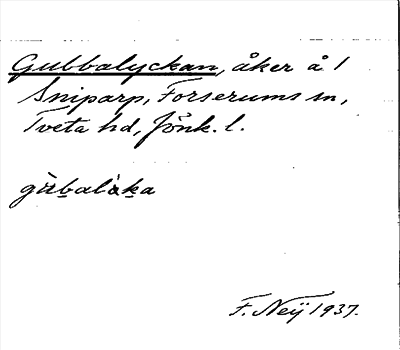 Gubbalyckan, åker å 1
Sniparp, Forserums sn,
Tveta hd, Jönk. l.
F. Neij 1937.